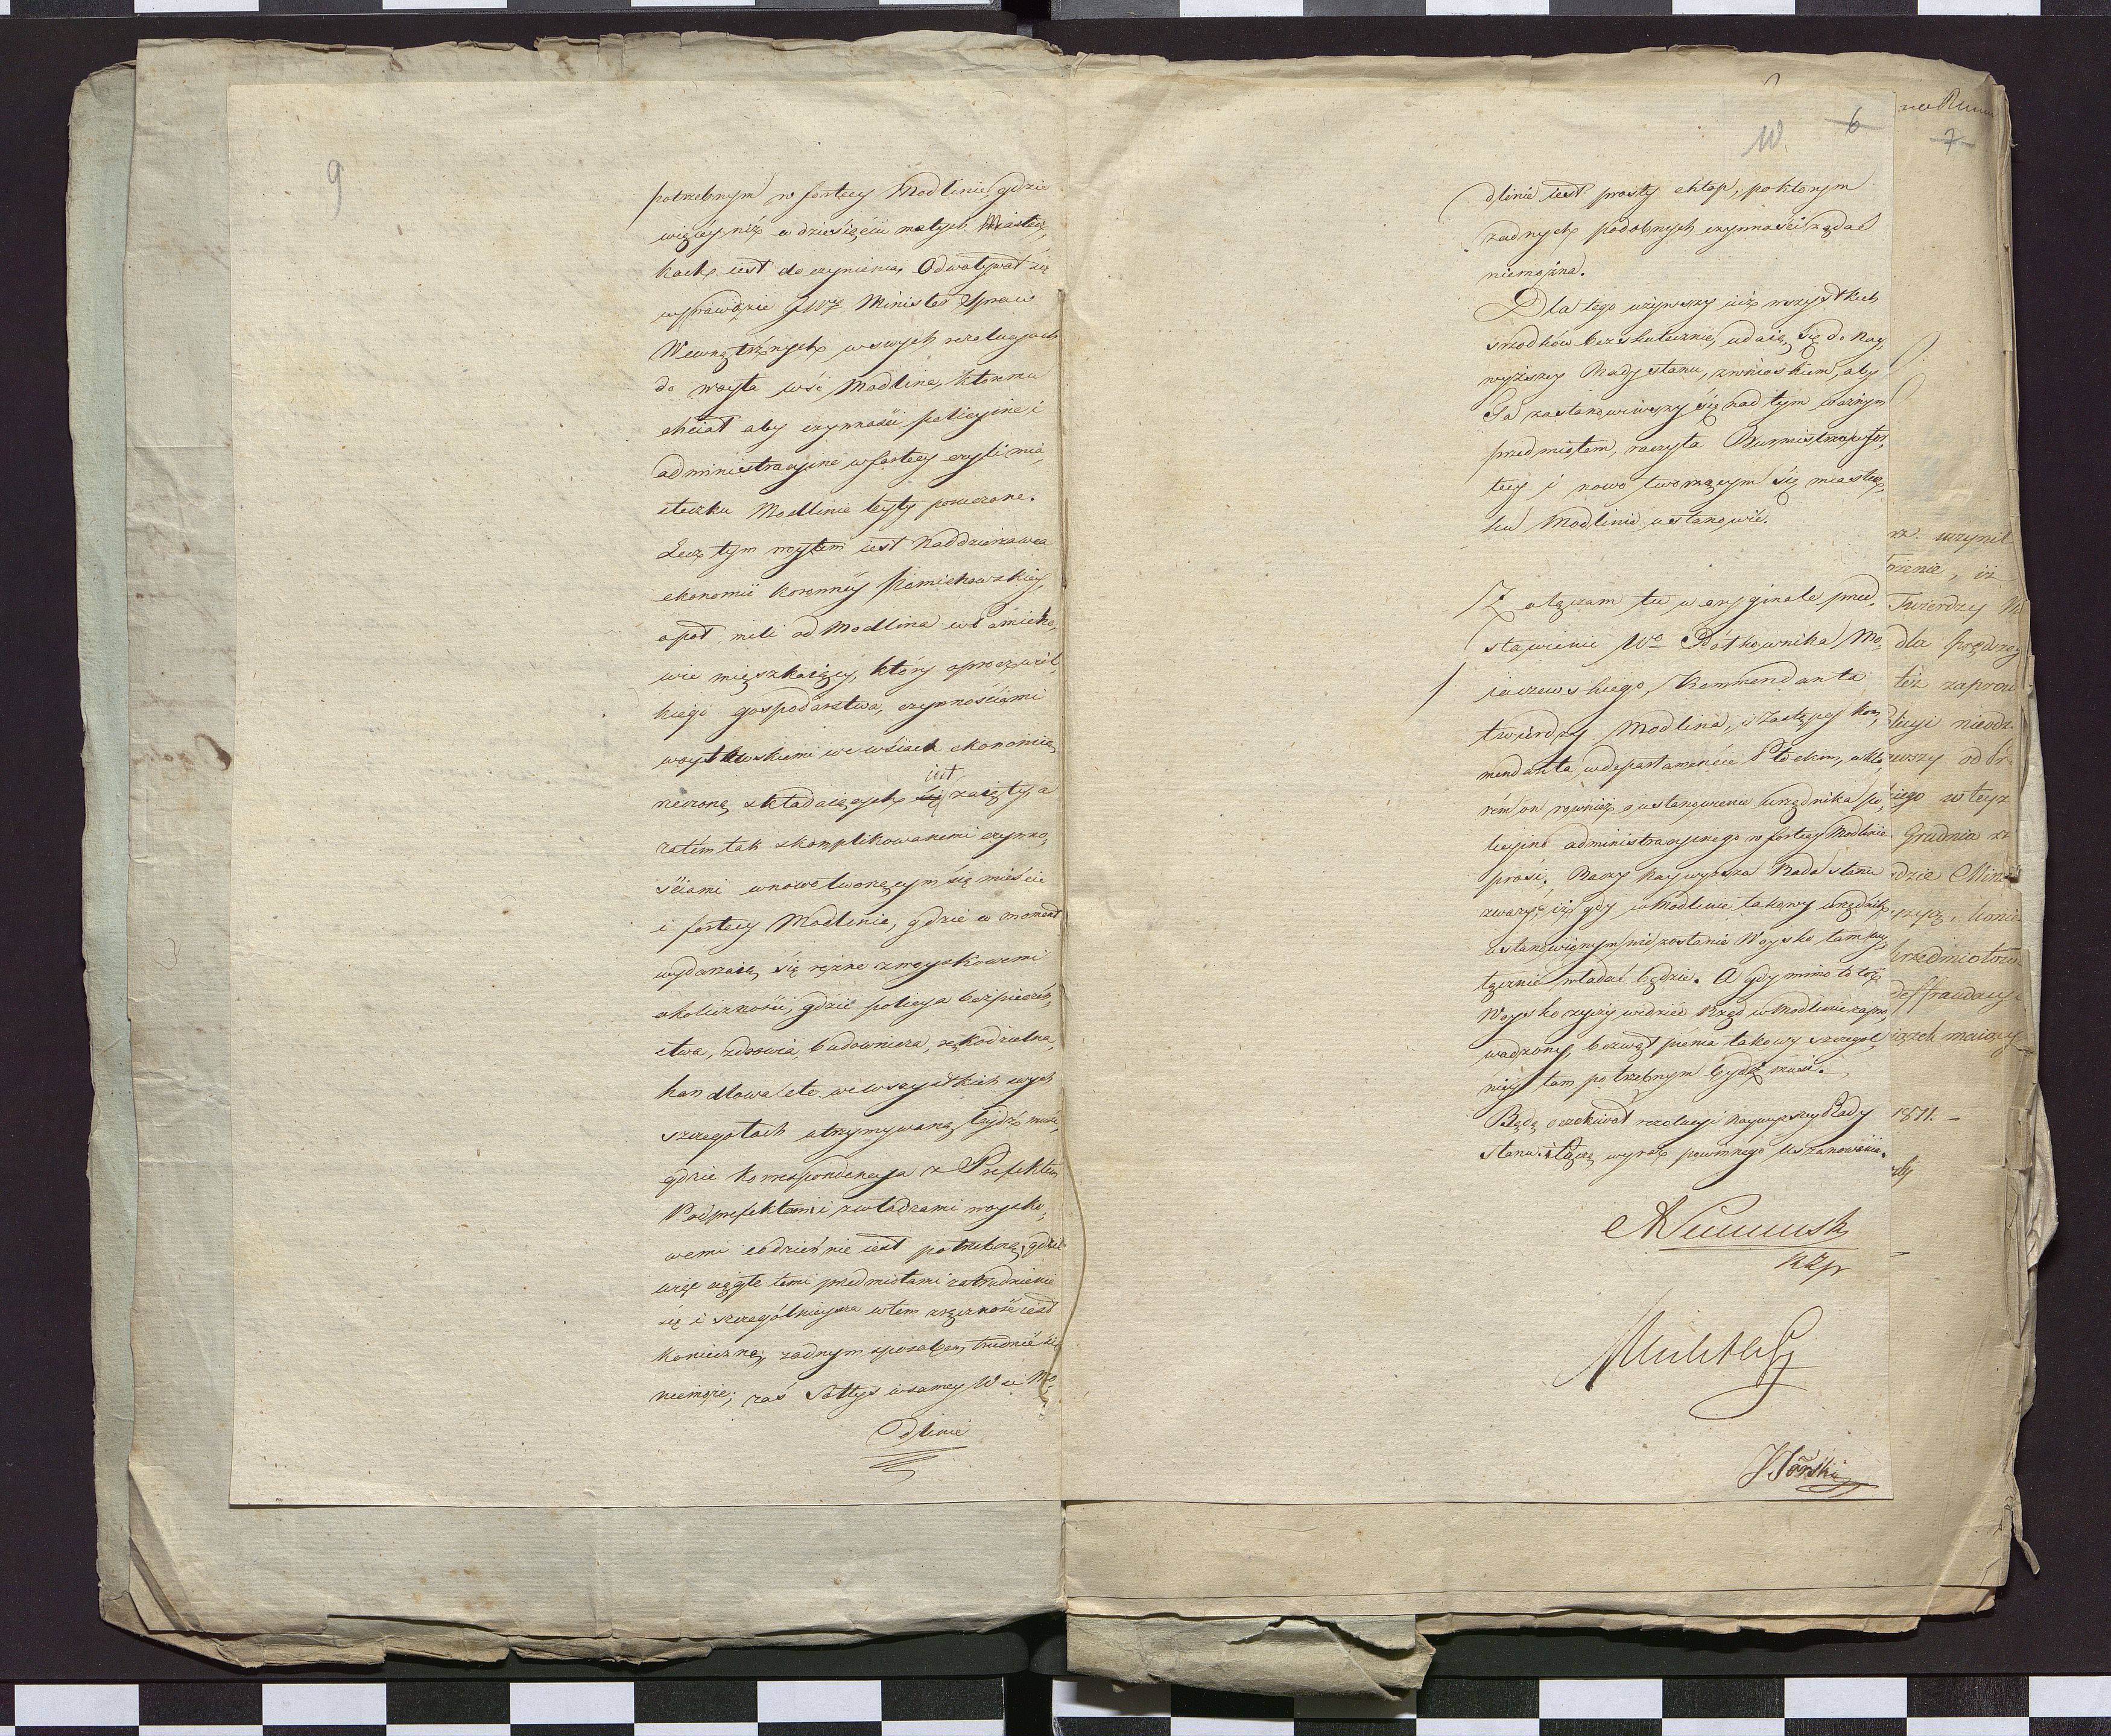 9
potrzebnym w fortecy Modlinie gdzie
więcey niż w dziesięciu małych Miastecz,
kach iest do czynienia, Odwoływał się
wprawdzie JWż Minister Spraw
Wewnętrznych w swych rezolucyach
do woyta wśi Modlina, ktoremu
chciał aby czynności policyine i
administracyine w fortecy czyli mia,
steczku Modlinie były poruczone.
Lecz tym woytem iest Naddzierzawca
ekonomii koronney Pomiechowskiey,
o poł mili od Modlina w Pomiecho,
wie mięszkaiący, który oprocz wiel,
kiego gospodarstwa, czynnościami
woytowskiemi we wśiach ekonomią
rzeczoną składaiących iest zaięty, a
zatém tak skomplikowanemi czynno,
ściami w nowo tworzącym się mieście
i fortecy Modlinie, gdzie w moment
wydarzaią się rożne z woyskowemi
okoliczności, gdzie policya bezpieczeń,
stwa, zdrowia, budownicza, rękodzielna,
handlowa etc. we wszystkich swych
szczegołach utrzymywaną bydź musi,
gdzie korrespondencya z Prefektem
Podprefektami z władzami woysko,
wemi codziennie iest potrzebną, gdzie
więc ciągłe temi przedmiotami zatrudnienie
się i szczegolnieysza w tem zręczność iest
konieczną, żadnym sposobem trudnić się
niemoże; zaś Sołtys w samey Wsi Mo,
dlinie
W. 6
dlinie iest prosty chłop, po ktorym
żadnych podobnych czynności żądać
niemożna.
Dla tego używszy iuż wszystkich
srzodków bezskutecznie, udaię się do Nay,
wyższey Rady stanu, z wnioskiem, aby
Ta zastanowiwszy się nad tym ważnym
przedmiotem, raczyła Burmistrza w for,
tecy i nowo tworzącym się miastecz,
ku Modlinie ustanowić.
Załączam tu w oryginale przed,
stawienie Wo Półkownika Mo,
iaczewskiego, Kommendanta
twierdzy Modlina, i Zastępcy Kom,
mendanta w departamencie Płockim, w kto,
rém on również o ustanowienie urzędnika po,
licyino administracyinego w fortecy Modlinie
prosi. Raczy Naywyższa Rada stanu
zważyć, iż gdy w Modlinie takowy urzędnik
ustanowionym nie zostanie Woysko tam wy,
łącznie władać będzie. A gdy mimo to toż
Woysko życzy widzieć Rząd w Modlinie zapro,
wadzony, bez wątpienia takowy szczegol,
niey tam potrzebnym bydź musi.
Będę oczekiwał rezolucyi Naywyższey Rady
stanu. i Łączę wyraz powinnego uszanowania.
kzp
Górski
na
7
rz. uczynił
rzenie, iż
Twierdzy M
dla prędszey
też zaprow
licyi nieodz
wszy od
iego w tey
Grudnia
dzie Mini
rzedmiotow
deffraudacy
iązch maiący
1811. –